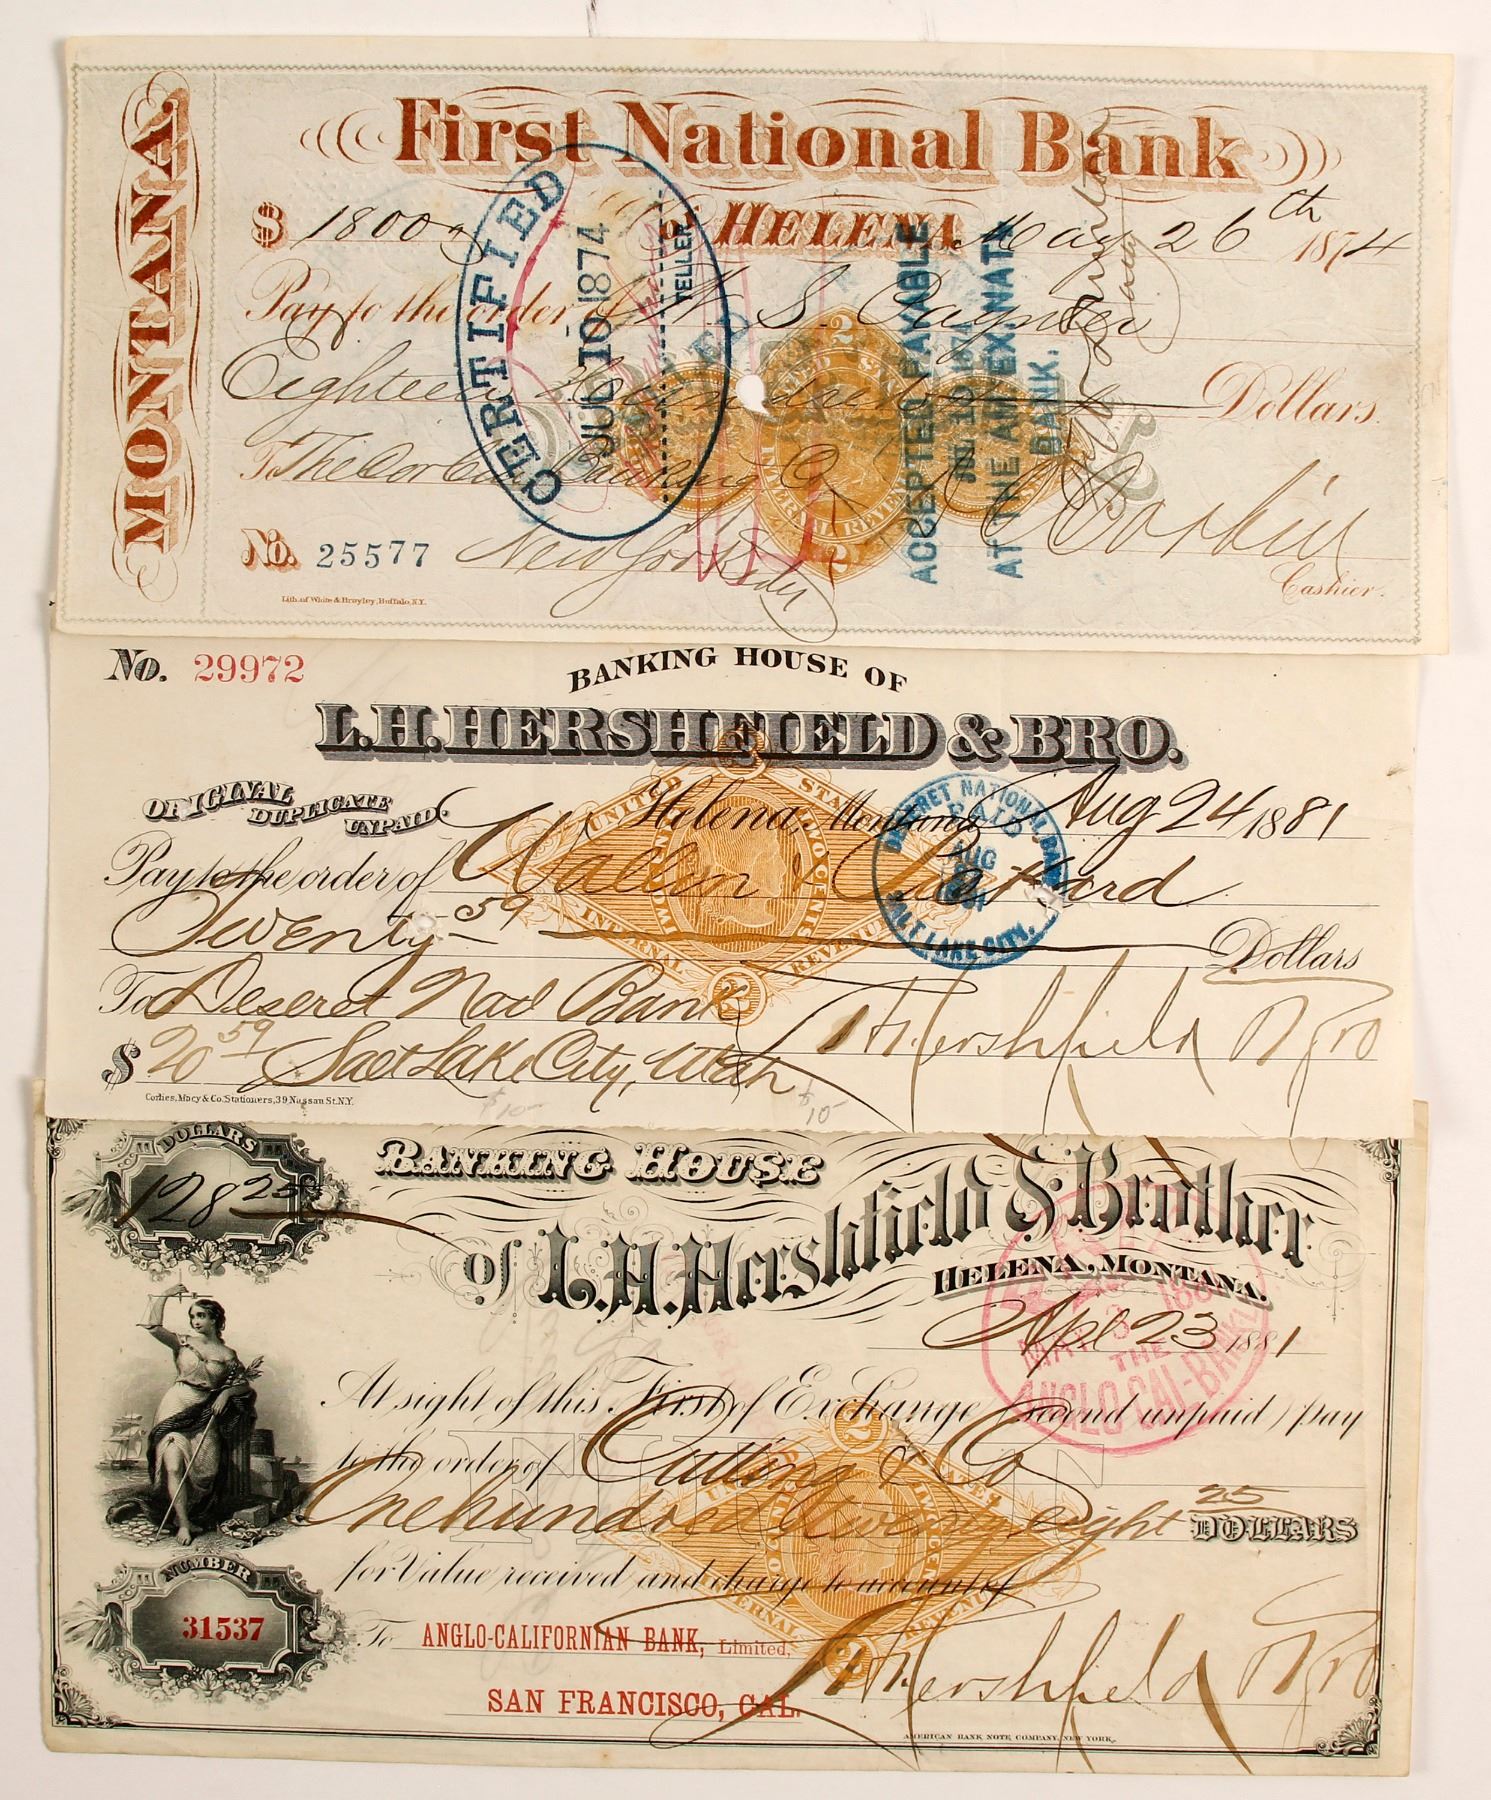 MONTANA
First National Bank
OF HELENA
$ 1800 May 26th 1874
Pay to the order of W. S. Paynter
Eighteen Hundred Dollars.
To The Corbin Banking Co
No. 25577 New York City
Corbin
Cashier.
Lith. of White & Brayley, Buffalo, N.Y.
CERTIFIED
JUL 10 1874
TELLER
ACCEPTED PAYABLE
JUL 10 1874
AT THE AM. EX. NAT.
BANK.
No. 29972
BANKING HOUSE OF
L.H. HERSHFIELD & BRO.
ORIGINAL
DUPLICATE
UNPAID.
Helena, Montana Aug 24 1881
Pay to the order of Wallin &
Twenty 59 Dollars
To Deseret Nat Bank
$ 20 59 Salt Lake City, Utah
L H Hershfield & Bro
Corlies, Macy & Co. Stationers, 39 Nassau St. N.Y.
$10-
$10-
UNITED STATES
TWO CENTS
INTERNAL REVENUE
2
DESERET NATIONAL BANK
PAID
AUG
SALT LAKE CITY.
DOLLARS
128 25
BANKING HOUSE
of L.H. Hershfield & Brother
HELENA, MONTANA.
Apl 23 1881
At sight of this First of Exchange (second unpaid) pay
to the order of Cutting & Co
One hundred & twenty eight 25 DOLLARS
for Value received and charge to account of
NUMBER
31537
To ANGLO-CALIFORNIAN BANK, Limited,
SAN FRANCISCO, CAL.
L H Hershfield & Bro
AMERICAN BANK NOTE COMPANY, NEW YORK.
MAY 3 1881
THE
ANGLO CAL-BANK